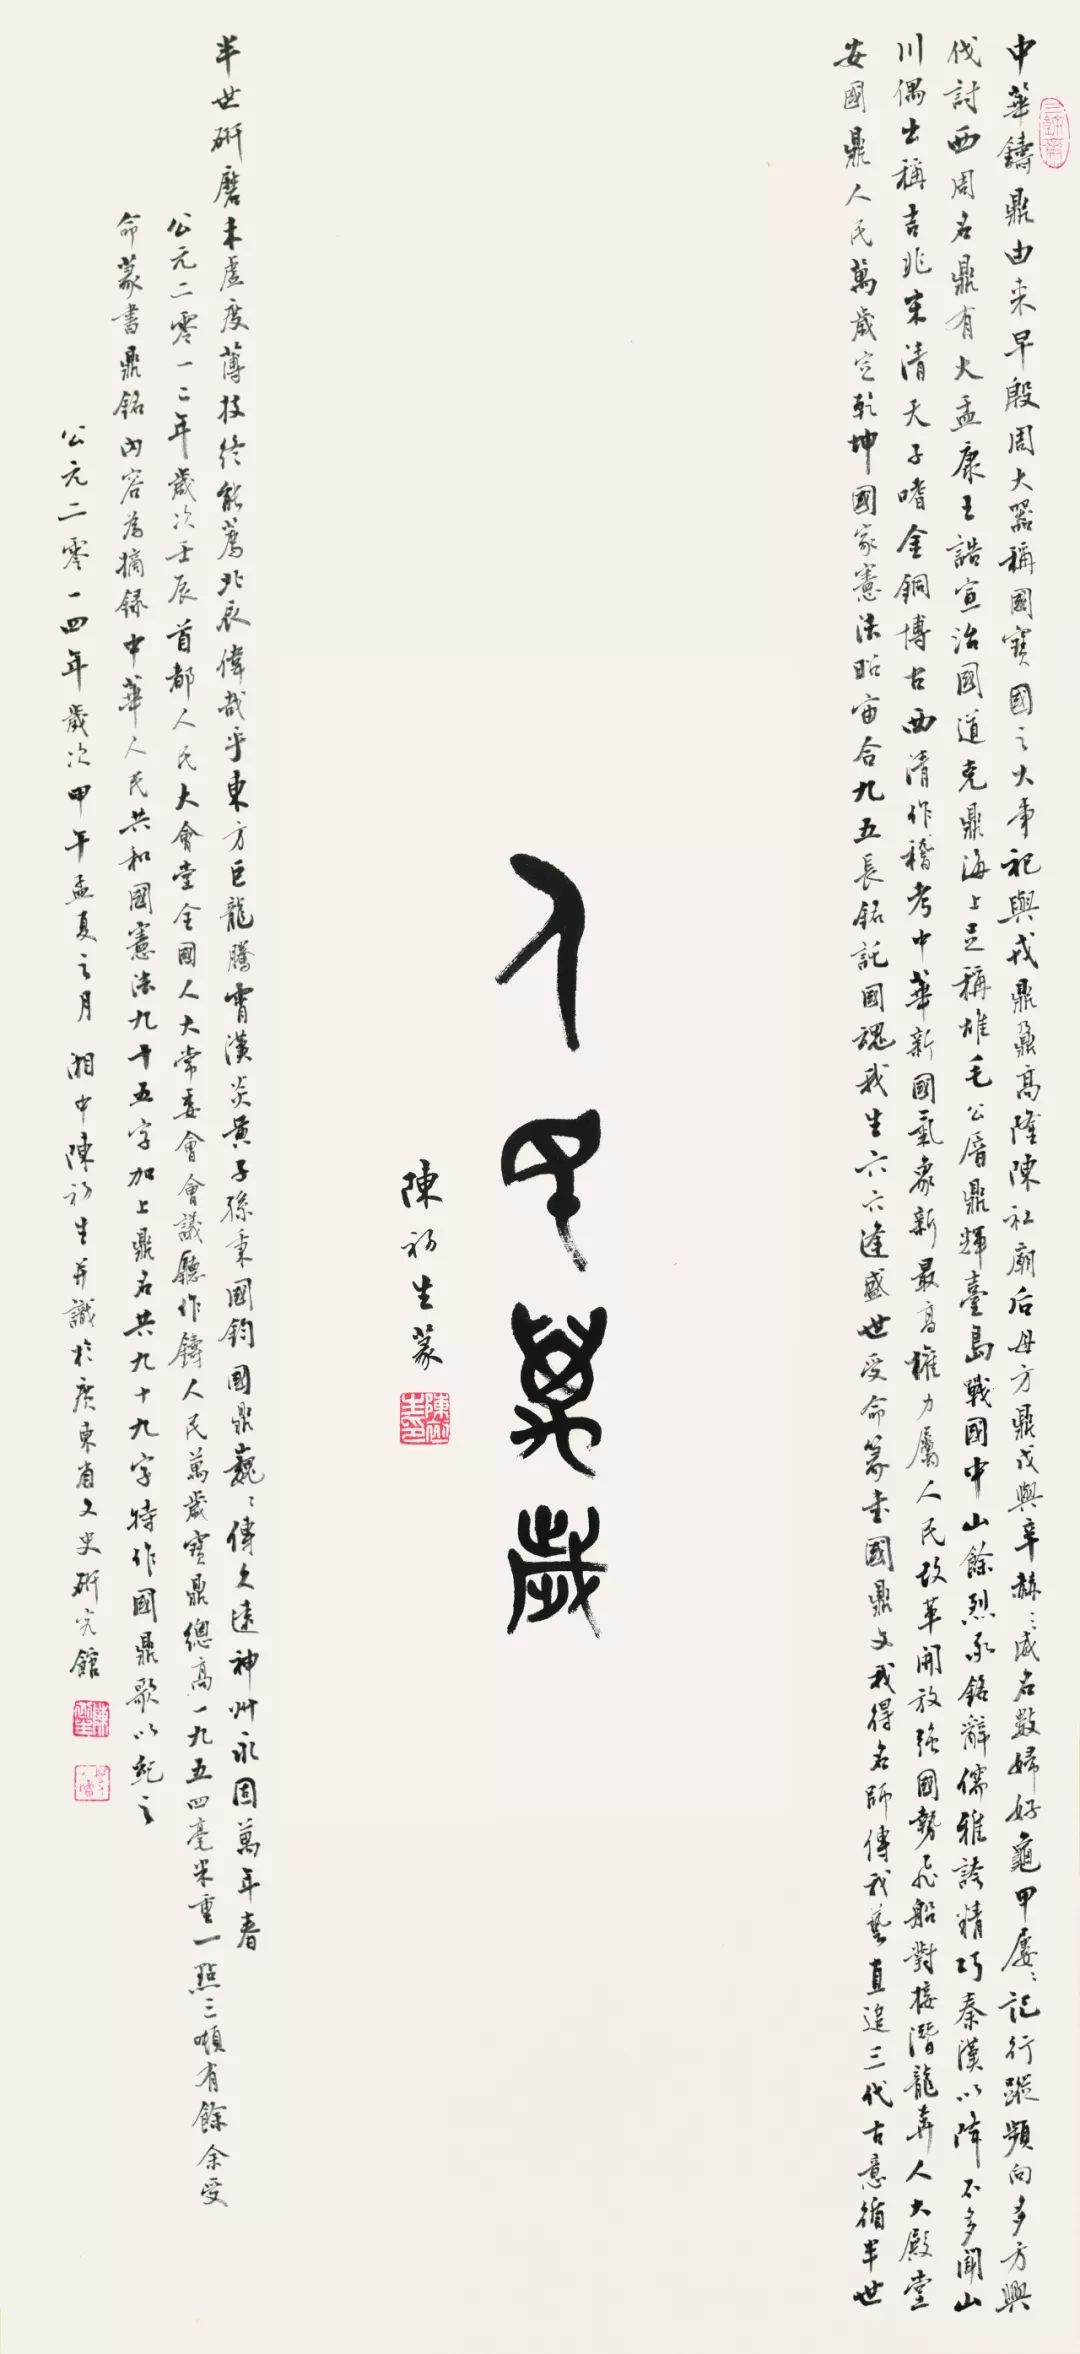 中華鑄鼎由来早殷周大器稱國寶國之大事祀與戎鼎鼐高隆陳社廟后母方鼎戊與辛赫〻威名數婦好龜甲屢〻記行蹤頻向多方興
伐討西周名鼎有大盂康王誥宣治國道克鼎海上足稱雄毛公厝鼎輝臺島戰國中山餘烈承銘辭儒雅誇精巧秦漢以降不多聞山
川偶出稱吉兆宋清天子嗜金銅博古西清作稽考中華新國氣象新最高權力屬人民改革開放强國勢飛船對接潛龍奔人大殿堂
安國鼎人民萬歲定乾坤國家憲法昭宙合九五長銘託國魂我生六六逢盛世受命篆書國鼎文我得名師傳我藝直追三代古意循半世
人民萬歲
陳初生篆
陳初生印
半世研磨未虛度薄技终能薦北辰偉哉乎東方巨龍騰霄漢炎黃子孫秉國鈞國鼎巍〻傳久遠神州永固萬年春
公元二零一二年歲次壬辰首都人民大會堂全國人大常委會會議廳作鑄人民萬歲寶鼎總高一九五四毫米重一點三噸有餘余受
命篆書鼎銘內容為摘録中華人民共和國憲法九十五字加上鼎名共九十九字特作國鼎歌以紀之
公元二零一四年歲次甲午孟夏之月 湘中陳初生并識於廣東省文史研究館